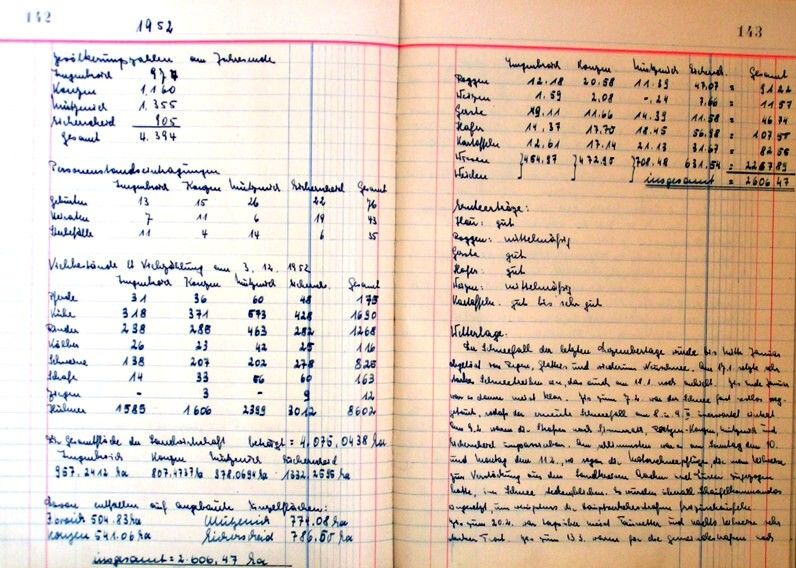 142
1952
Bevölkerungszahlen am Jahresende
Imgenbroich 974
Konzen 1.160
Mützenich 1.355
Eicherscheid 905
Gesamt 4.394
Personenstandseintragungen
Imgenbroich Konzen Mützenich Eicherscheid Gesamt
Geburten 13 15 26 22 76
Heiraten 7 11 6 19 43
Sterbefälle 11 4 14 6 35
Viehbestände lt Viehzählung am 3.12.1952
Imgenbroich Konzen Mützenich Eichersch. Gesamt
Pferde 31 36 60 48 175
Kühe 318 371 573 428 1690
Rinder 238 285 463 282 1268
Kälber 26 23 42 25 116
Schweine 138 207 202 278 825
Schafe 14 33 56 60 163
Ziegen - 3 - 9 12
Hühner 1585 1606 2399 3012 8602
Die Gesamtfläche der Landwirtschaft beträgt = 4.075,0438 ha
Imgenbroich Konzen Mützenich Eicherscheid
957.2412 ha 807.4737 ha 978.0694 ha 1332.2595 ha
davon entfallen auf angebaute Einzelflächen:
Imbroich 504.83 ha Mützenich 774.08 ha
Konzen 541.06 ha Eicherscheid 786.50 ha
insgesamt = 2.606,47 ha
143
Imgenbroich Konzen Mützenich Eichersch. Gesamt
Roggen 12.18 20.58 11.39 47.07 = 91.22
Weizen 1.59 2.08 -.24 7.66 = 11.57
Gerste 11.66 14.39 11.58 = 46.74
Hafer 14.37 17.75 18.45 56.98 = 107.55
Kartoffeln 12.61 17.14 21.13 31.67 = 82.55
Wiesen } 454.97 } 472.95 } 708.48 631.54 =
Weiden insgesamt = 2606.47
Ernteerträge:
Heu: gut
Roggen: mittelmäßig
Gerste gut
Hafer: gut
Weizen: mittelmäßig
Kartoffeln. gut bis sehr gut
Wetterlage:
Der Schneefall der letzten Dezembertage wurde bis Mitte Januar
abgelöst von Regen, Glatteis und wiederum Am 17.1. setzte sehr
starkes Schneetreiben an, das auch am 18.1. noch anhielt. Bis Ende Januar
war es dann meist klar. Bis zum 7.2. war der Schnee fast restlos weg-
sodaß der erneute Schneefall am 8. u. 9. II
am 9.2. waren die Straßen nach Simmerath, Konzen, Mützenich und
Eicherscheid Am schlimmsten war es am Sonntag dem 10.
und Montag dem 11.2., wo sogar die Motorschneepflüge, die man
zur Verstärkung aus den Landkreisen Aachen und Düren
hatte, im Schnee steckenblieben. Es wurden überall Schaufelkommandos
eingesetzt, um wenigstens die
Bis zum 20.2. war meist und nachts sehr
starker Frost. Bis zum 13.3. waren